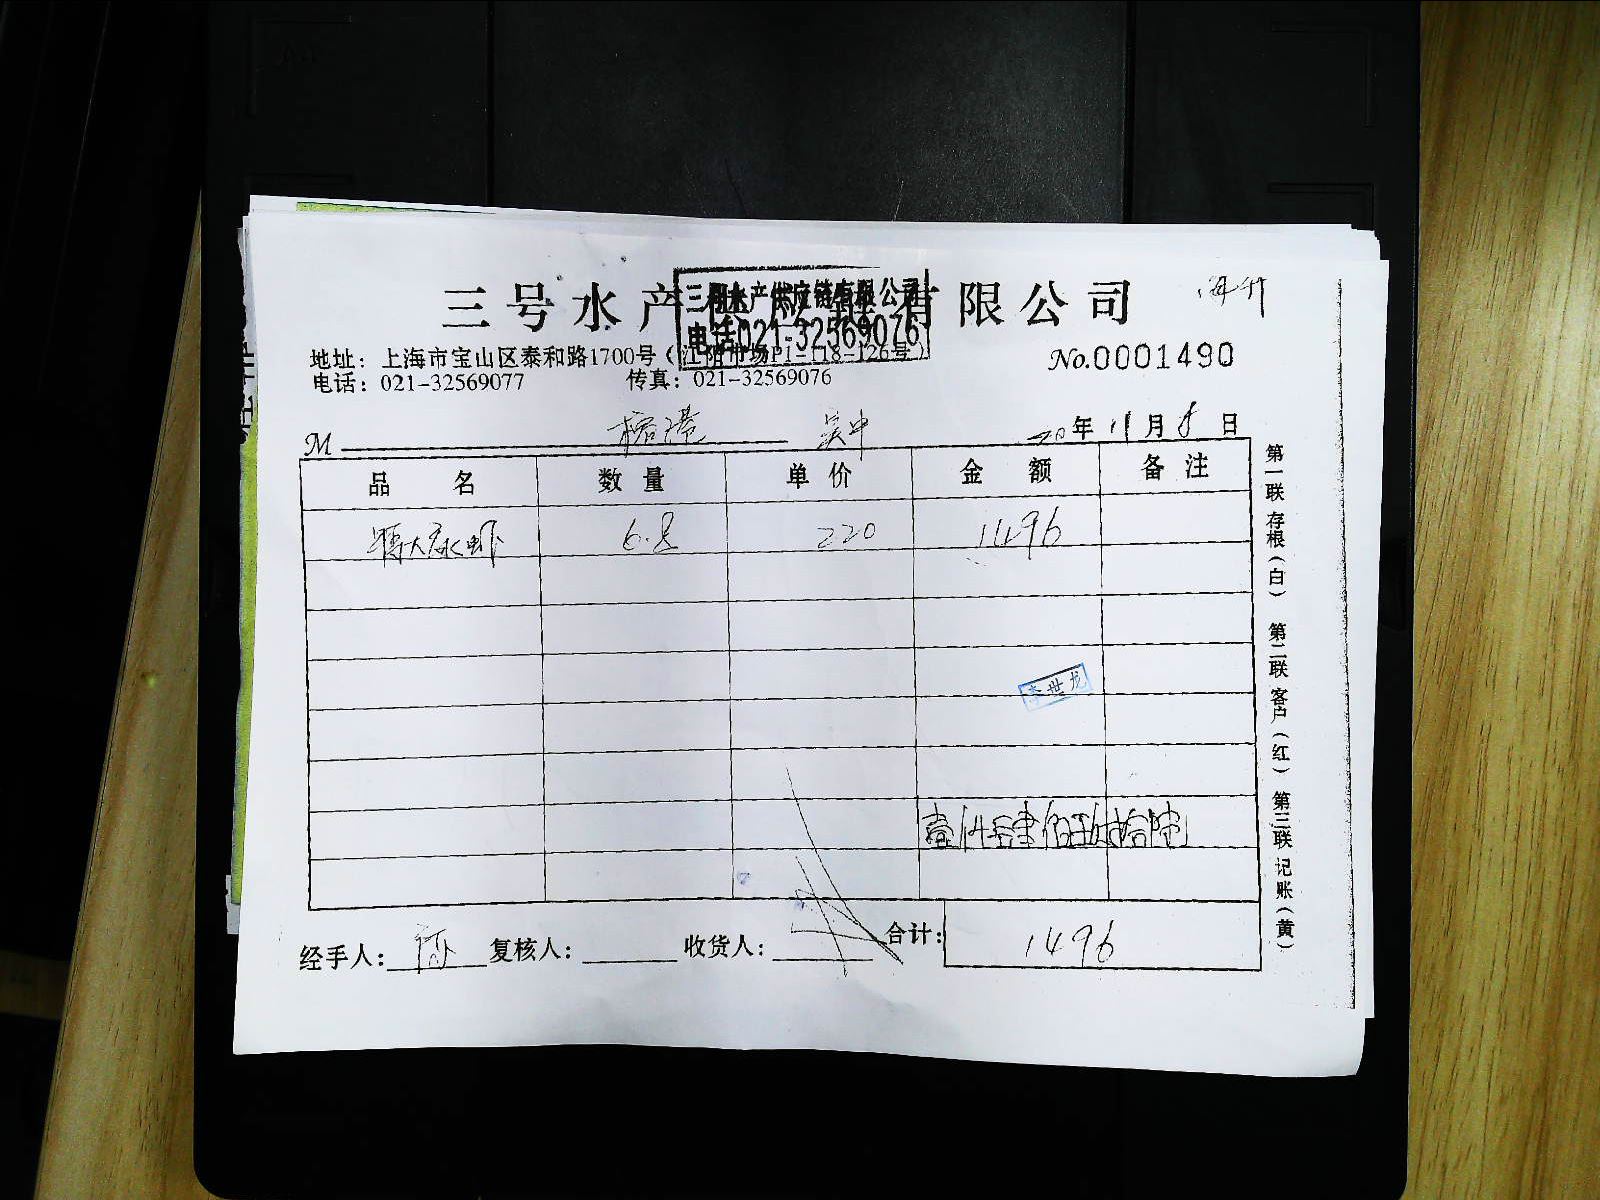 三号水产供应链有限公司
三号水产供应链有限公司
电话021-32569076
地址：上海市宝山区泰和路1700号（江阳市场P1-118-126号）
No.0001490
电话：021-32569077 传真：021-32569076
M 榕港 吴中 20年11月8日
品名 数量 单价 金额 备注
特大 虾 6.8 220 1496
李世龙
壹仟肆佰玖拾陆
经手人： 复核人： 收货人： 合计： 1496
第一联存根（白） 第二联客户（红） 第三联记账（黄）